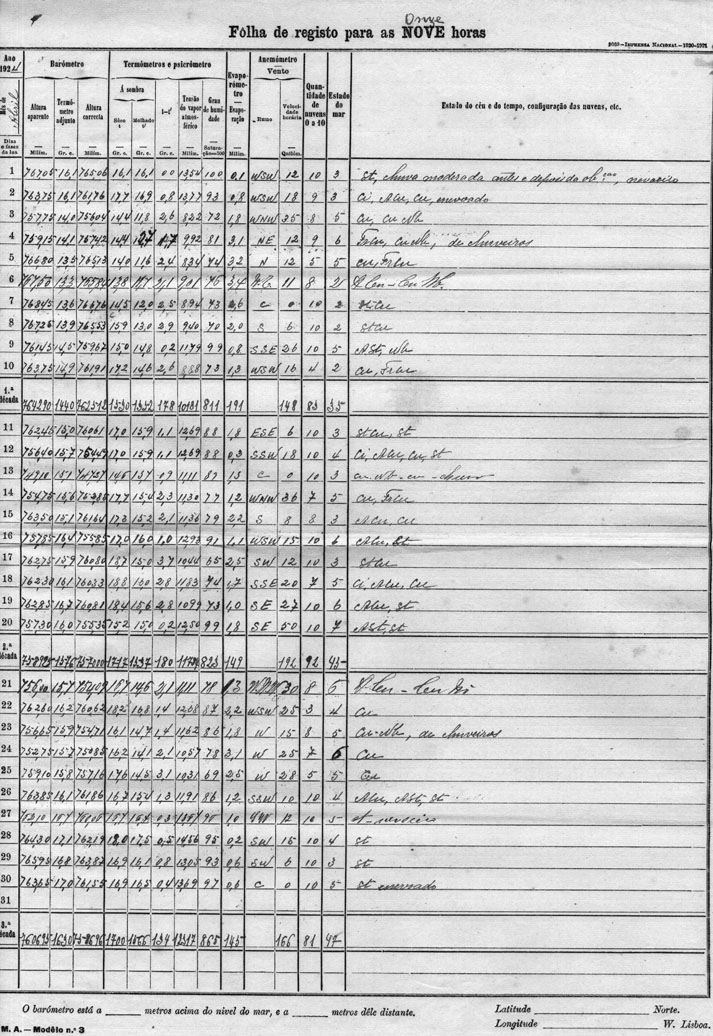 Onze
Fôlha de registo para as NOVE horas
5023—IMPRENSA NACIONAL—1920-1921
Ano
192
Mês de
Abril
Dias e fases da lua
Barómetro
Termómetros e psicrómetro
Evaporómetro
Anemómetro
Quantidade de nuvens 0 a 10
Estado do mar
Estado do céu e do tempo, configuração das nuvens, etc.
Á sombra
Vento
Altura aparente
Termómetro adjunto
Altura correcta
Sêco t
Molhado t'
t—t'
Tensão do vapor atmosférico
Grau de humidade
Evaporação
Rumo
Velocidade horária
Milím.
Gr. c.
Milím.
Gr. c.
Gr. c.
Gr. c.
Milím.
Saturação=100
Milím.
Quilóm.
1 76705 16,1 76506 16,1 16,1 00 1354 100 0,1 WSW 12 10 3 St, chuva moderada antes e depois da nevoeiro
2 76375 16,1 76176 17,7 16,9 0,8 1377 93 0,8 WSW 18 9 3 Ci, Acu, Cu, enevoado
3 75775 14,0 75604 14,4 11,8 2,6 822 72 1,8 WNW 35 8 5 Cu, Cu Nb
4 75915 14,1 75742 14,4 992 81 3,1 NE 12 9 6 Frcu, CuNb, de chuveiros
5 76680 13,5 76513 14,0 11,6 2,4 834 74 3,2 N 12 5 5 Cu, Frcu
6 138 2,1 901 76 3,4 11 8
7 76845 13,6 76676 14,5 12,0 2,5 894 73 2,6 C 0 10 2 St Cu
8 76725 13,9 76553 15,9 13,0 2,9 940 70 2,0 S 6 10 2 StCu
9 76145 14,5 75967 15,0 14,8 0,2 1179 99 0,8 SSE 26 10 5 ASt, Nb
10 76375 14,9 76191 17,2 14,6 2,6 888 73 1,3 WSW 16 4 2 Cu, Frcu
1.ª década 764290 1440 762512 1530 1352 178 10181 811 191 148 83 35
11 76245 15,0 76061 17,0 15,9 1,1 1269 88 1,8 ESE 6 10 3 StCu, St
12 75640 15,7 75449 17,0 15,9 1,1 1269 88 0,3 SSW 18 10 4 Ci, Acu, Cu, St
13 0,9 1111 C 0 10 3
14 75475 15,6 75285 17,7 15,4 2,3 1130 77 1,2 WNW 36 7 5 Cu, Frcu
15 76350 15,1 76164 17,3 15,2 2,1 1136 79 2,2 S 8 8 3 ACu, Cu
16 75785 16,4 75585 17,0 16,0 1,0 1293 91 1,1 WSW 15 10 6 Acu, St
17 76275 15,9 76080 18,7 15,0 3,7 1044 65 2,5 SW 12 10 3 StCu
18 76230 16,1 76033 18,8 16,0 2,8 1183 74 1,7 SSE 20 7 5 Ci, Acu, Cu
19 76285 16,7 76081 18,4 15,6 2,8 1099 73 1,0 SE 27 10 6 Acu, St
20 75730 16,0 75536 15,2 15,0 0,2 1250 99 1,8 SE 50 10 7 ASt, St
2.ª década 1576 1717 1537 180 823 149 192 92 45
21 15,7 2,1 1111 30 8 6
22 76260 16,2 76062 18,2 16,8 1,4 1208 87 2,2 WSW 25 3 4 Cu
23 75665 15,9 75471 16,1 14,7 1,4 1162 86 1,8 W 15 8 5 Cu-Nb, de chuveiros
24 75275 15,7 75085 16,2 14,1 2,1 1057 78 3,1 W 25 7 6 Cu
25 75910 15,8 75716 17,6 14,5 3,1 1031 69 2,5 W 28 5 5 Cu
26 76385 16,1 76186 16,7 15,4 1,3 1191 86 1,2 SSW 10 10 4 Acu, ASt, St
27 0,3 1,0 12 10 5 St-nevoeiro
28 76430 17,1 76219 18,0 17,5 0,5 1456 95 0,2 SW 15 10 4 St
29 76595 16,8 76387 16,9 16,1 0,8 1305 93 0,6 SW 6 10 3 St
30 76365 17,0 76155 16,9 16,5 0,4 1369 97 0,6 C 0 10 5 St enevoado
31
3.ª década 760695 1630 1700 1566 134 12317 865 145 166 81 47
O barómetro está a ______ metros acima do nivel do mar, e a ______ metros dêle distante.
Latitude ______ Norte.
Longitude ______ W. Lisboa.
M. A.—Modêlo n.º 3